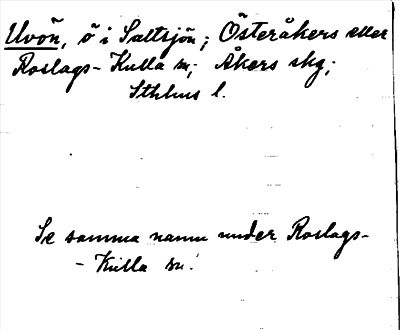 Uvön, ö i Saltsjön; Österåkers eller
Roslags-Kulla sn; Åkers skg;
Sthlms l.
Se samma namn under Roslags-
-Kulla sn.